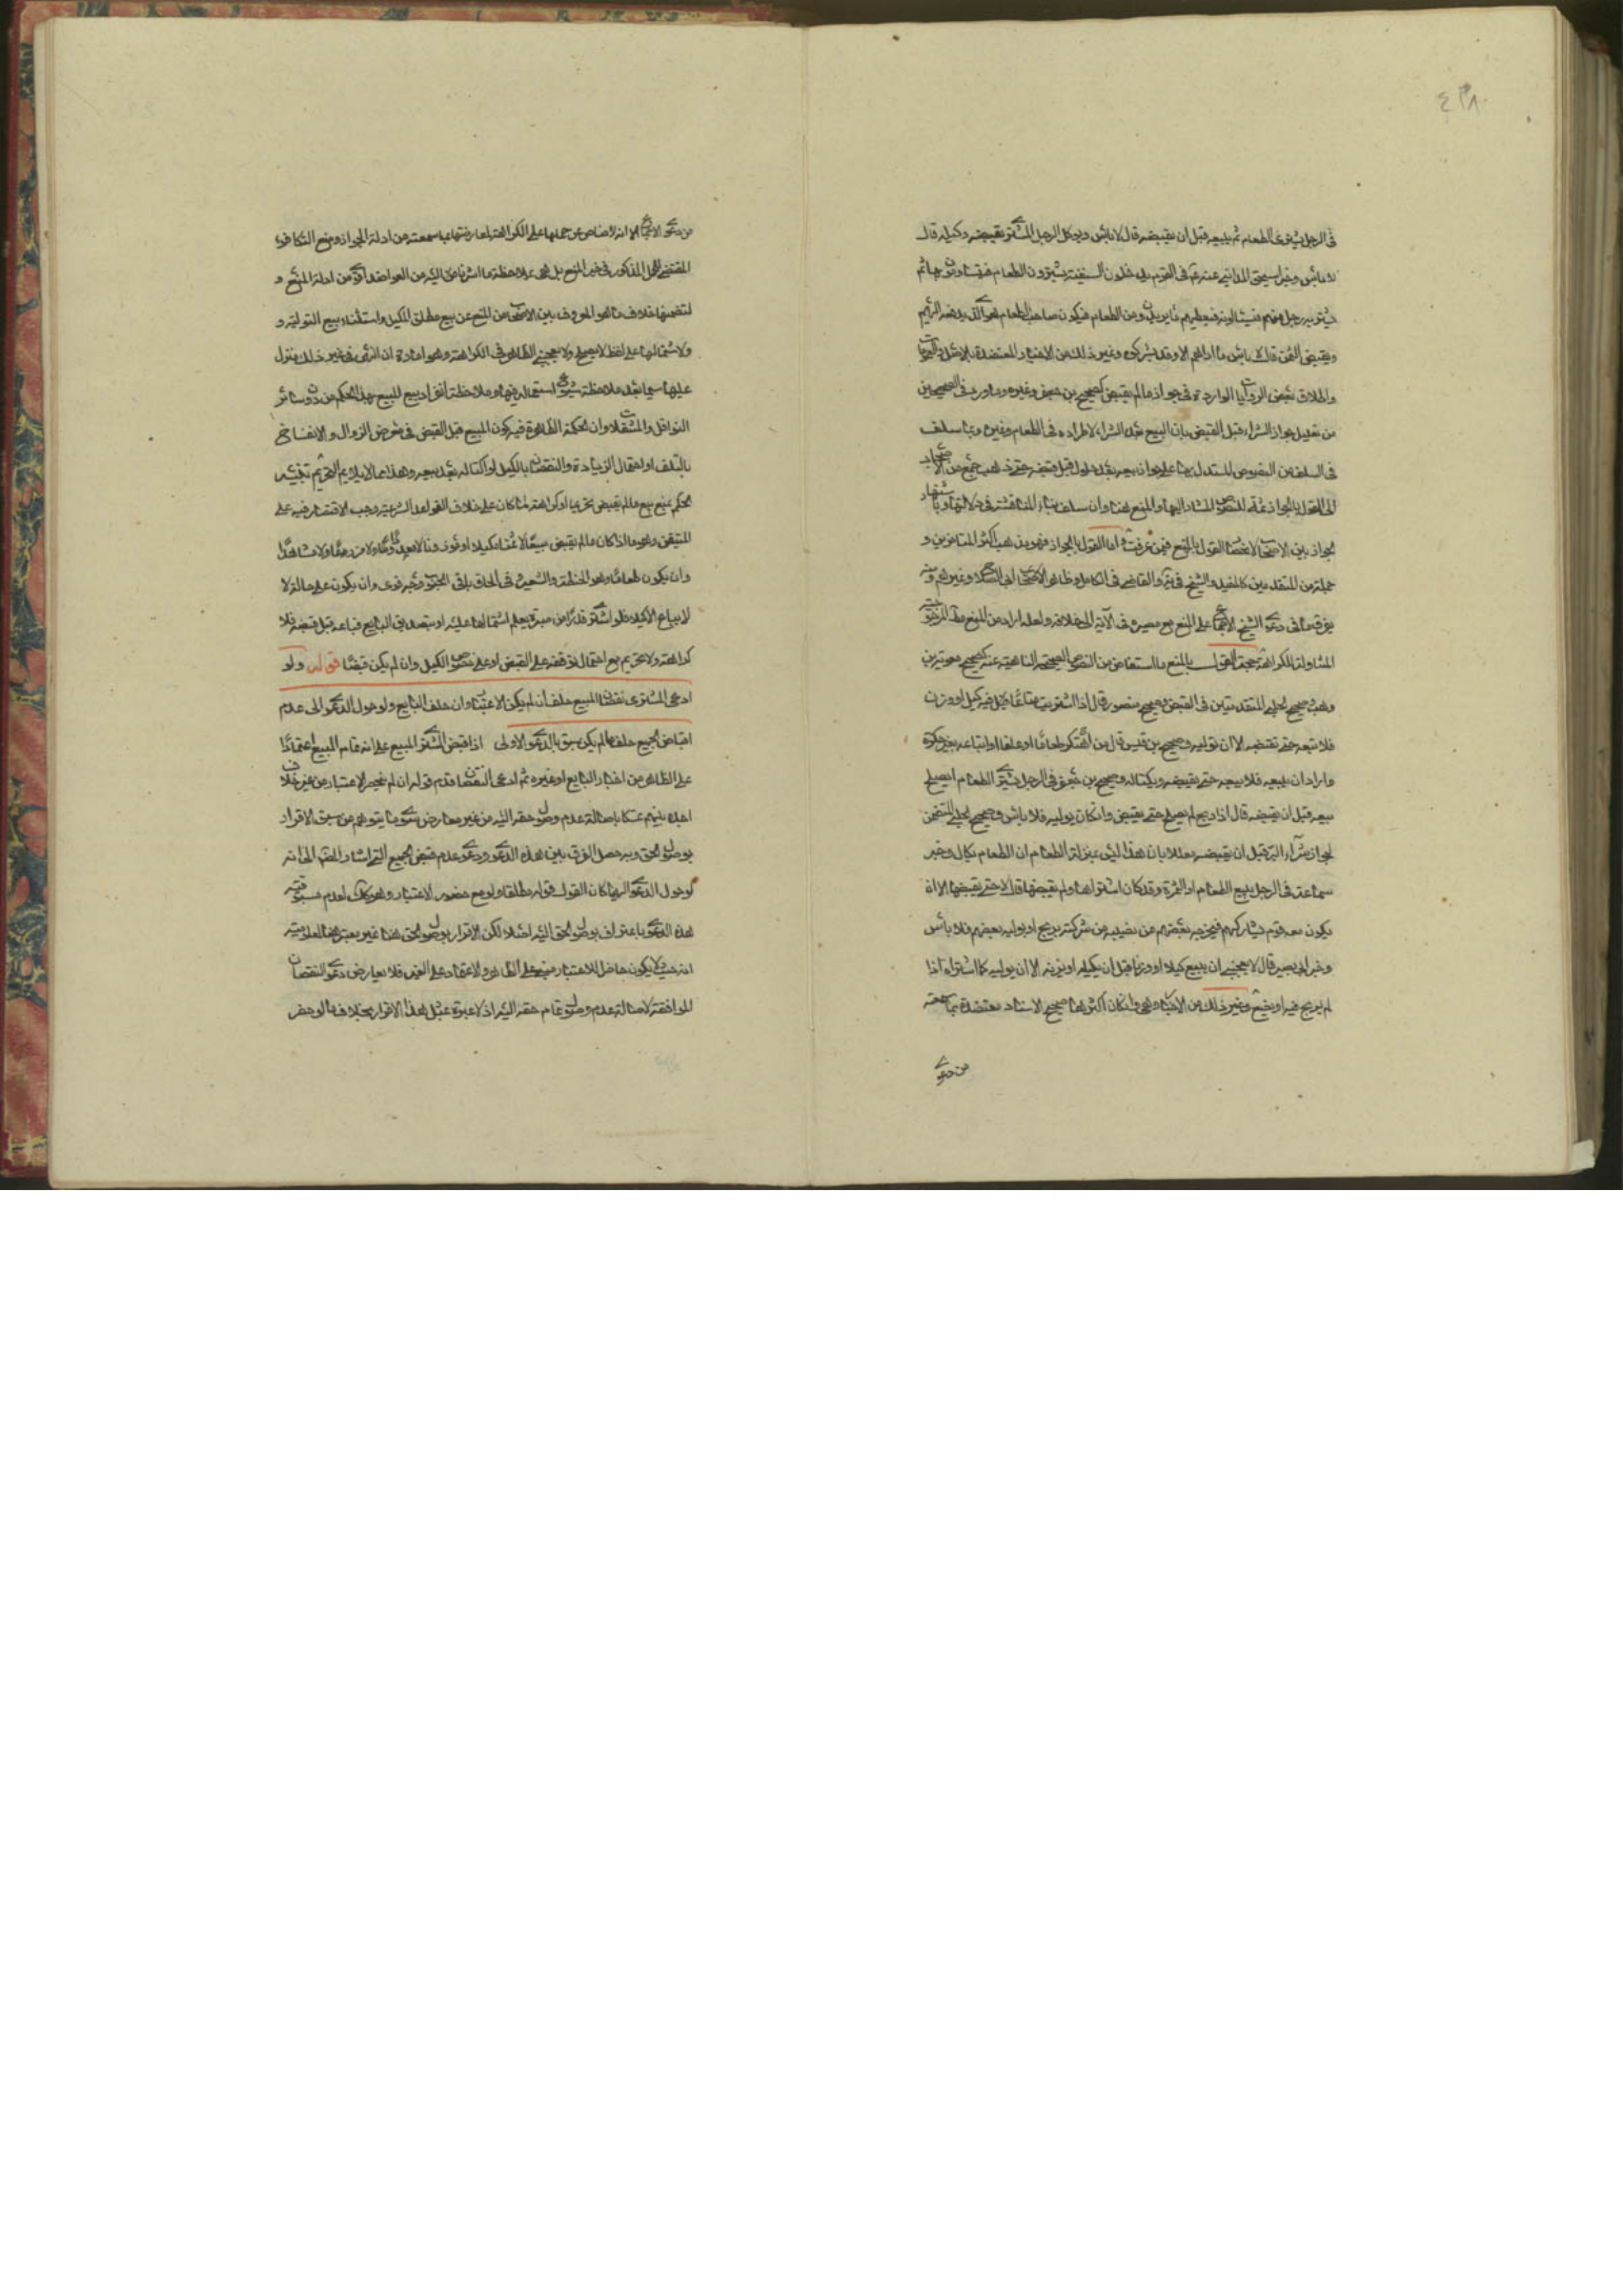 ٤٣٨
فى الرجل يشترى الطعام ثم يبيعه قبل ان يقبضه قال لا باس ويوكل الرجل المشترى بقبضه وكيله قال
لا باس وخبر اسحق المدائنى عنه فى القوم يدخلون السفينة يشترون الطعام فيتساومون بها ثم
يشتريه رجل منهم فيسئالونه فيعطيهم ما يريدون من الطعام فيكون صاحب الطعام هو الذى يدفعه اليهم
ويقبض الثمن قال لا باس ما اراهم الا وقد شركوه وغير ذلك من الاخبار المعتضدة بالاصل
واطلاق بعض الروايات الواردة فى جواز ما لم يقبض كصحيح بن وغيره وما ورد فى الصحيحين
من تعليل جواز الشراء قبل القبض بان البيع بعد الشراء لاطراده فى الطعام وغيره وبما سلف
فى السلف من النصوص المستدل بها على جواز بيعه بعد حلوله قبل قبضه حتى ذهب جمع من الاصحاب
الى القول بالجواز ثمة للنصوص المشار اليها والمنع هنا وان سلف بناء المناقشة فى دلالتها وباشتهار
الجواز بين الاصحاب لاختصاص القول بالمنع فيمن عرفت اما القول بالجواز فهو مذهب اكثر المتاخرين و
جملة من المتقدمين كالمفيد والشيخ فى يه والقاضى فى الكامل وظاهر الاصحاب
فى دعوى الشيخ الاجماع على المنع مع مصيره فى الاية الى خلافه ولعله اراد من المنع
المتناولة للكراهة حجة القول بالمنع ما استفاض من النصوص الصحيحة الناهية عنه كصحيح معوية بن
وهب وصحيح الحلبى المتقدمتين فى القبض وصحيح منصور قال اذا اشتريت متاعا فيه كيل او وزن
فلا تبعه حتى تقبضه الا ان توليه وصحيح بن قيس قال من احتكر طعاما او علفا او ابتاعه بغير حكرة
واراد ان يبيعه فلا يبيعه حتى يقبضه ويكتاله وصحيح بن فى الرجل يشترى الطعام ايصلح
بيعه قبل ان يقبضه قال اذا ربح لم يصلح حتى يقبض وان كان يوليه فلا باس وصحيح الحلبى المتضمن
لجواز شراء قبل ان يقبضه معللا بان هذا ليس بمنزلة الطعام ان الطعام يكال وخبر
سماعة فى الرجل يبيع الطعام او الثمرة وقد كان اشتراها ولم يقبضها قال لا حتى يقبضها الا ان
يكون معه قوم يشاركهم فيخرجه بعضهم من نصيبه من شركته بربح او يوليه بعضهم فلا باس
وخبر ابى بصير قال لا يعجبنى ان يبيع كيلا او وزنا قبل ان يكيله او يزنه الا ان يوليه كما اشتراه اذا
لم يربح فيه او يضع وغير ذلك من الاخبار وهى وان كان اكثرها صحيح الاسناد معتضدة بما سمعته
من دعوى
من دعوى الاجماع الا انه لا مناص من حملها على الكراهة لمعارضتها بما سمعته من ادلة الجواز ومنع التكافوء
المقتضى للحمل المذكور فى غير المنع بل هى بملاحظة ما اشرنا اليه من العواضد اقوى من ادلة المنع و
لتضمنها خلاف ما هو المعروف بين الاصحاب من المنع عن بيع مطلق المكيل واستثناء بيع التولية و
ولاشتمالها على لفظ لا يصلح ولا يعجبنى الظاهر فى الكراهة وهو امارة ان النهى فى غير ذلك منزل
عليها سيما بعد ملاحظة شيوع استعماله فيها وملاحظة انفراد بيع المبيع بهذا الحكم من دون سائر
النواقل والمنتقلات وان الحكمة الظاهرة فيه كون المبيع قبل القبض فى معرض الزوال والانفساخ
بالتلف او احتمال الزيادة والنقصان بالكيل لو اكتاله بعد بيعه وهذا مما لا يلائم التحريم
الحكم بمنع بيع ما لم يقبض تحريما او كراهة لما كان على خلاف القواعد الشرعية وجب الاقتصار فيه على
المتيقن وهو ما اذا كان ما لم يقبض مبيعا لا ثمنا مكيلا او موزونا لا معدودا ولا مزروعا ولا مشاهدا
وان يكون طعاما وهو الحنطة والشعير فى الحاق باقى الحبوب وجه قوى وان يكون على حالة لا
لا يباع الا كيلا فلو اشترى قدرا من صبرة يعلم اشتمالها عليه او بتصديق البايع فباعه قبل قبضه فلا
كراهة ولا تحريم مع احتمال توقفه على القبض او على خصوص الكيل وان لم يكن قبضا قوله ولو
ادعى المشترى نقصان المبيع حلف ان لم يكن الاعتبار وان حلف البايع ولو حول الدعوى الى عدم
اقباض الجميع حلف ما لم يكن سبق بالدعوى الاولى اذا قبض المشترى المبيع على انه تمام المبيع اعتمادا
على الظاهر من اخبار البايع او غيره ثم ادعى النقصان قدم قوله ان لم يحضر الاعتبار من غير خلاف
اجده بينهم تمسكا باصالة عدم وصول حقه اليه من غير معارض سوى ما يتوهم من سبق الاقرار
بوصول الحق وبه حصل الفرق بين هذه الدعوى ودعوى عدم قبض الجميع التى اشار المصنف الى انه
لو حول الدعوى اليها كان القول قوله مطلقا ولو مع حضور الاعتبار وهو كك لعدم مسبوقية
هذه الدعوى باعتراف بوصول الحق اليه اصلا لكن الاقرار بوصول الحق هنا غير معتبر هنا لمعلومية
انه حيث لا يكون حاضرا للاعتبار مبنى على الظاهر والاعتماد على الغير فلا يعارض دعوى النقصان
الموافقة لاصالة عدم وصول تمام حقه اليه اذ لا عبرة بمثل هذا الاقرار بخلاف ما لو حضر